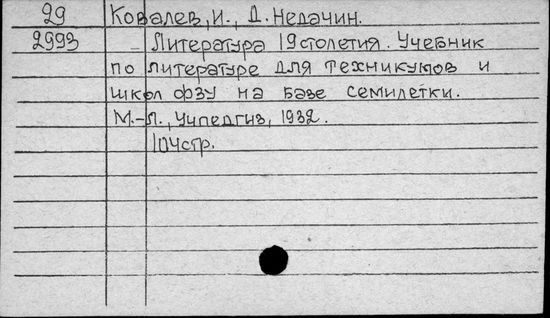 29 Ковалев, И., Д. Недачин.
2993 Литература 19 столетия. Учебник
по литературе для техникумов и
школ фзу на базе семилетки.
М.-Л., Учпедгиз, 1932.
104стр.